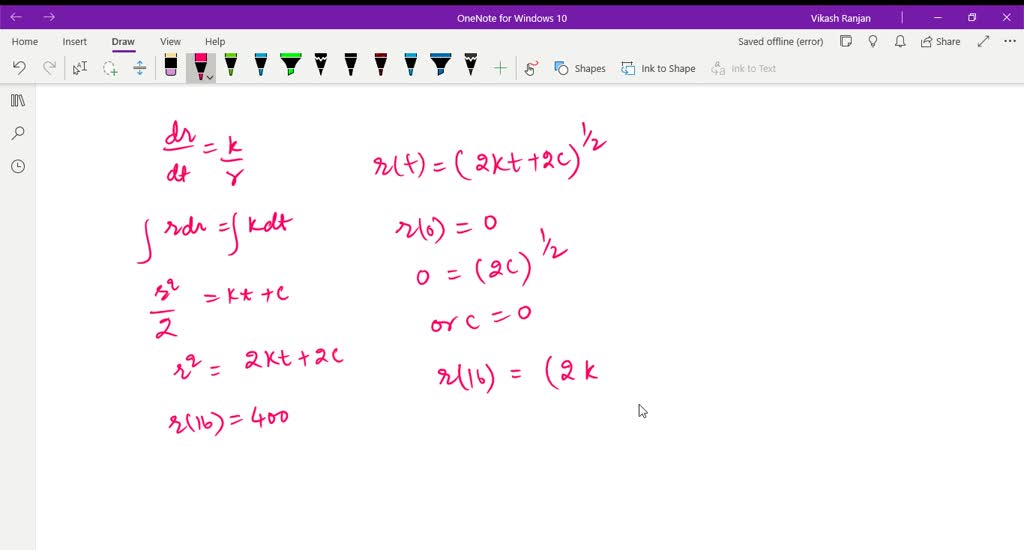 OneNote for Windows 10
Vikash Ranjan
Home Insert Draw View Help
Saved offline (error)
Share
Shapes
Ink to Shape
Ink to Text
dr/dt = k/r
∫ rdr = ∫ kdt
r²/2 = kt + c
r² = 2kt + 2c
r(16) = 400
r(t) = (2kt + 2c)^1/2
r(0) = 0
0 = (2c)^1/2
or c = 0
r(16) = (2k